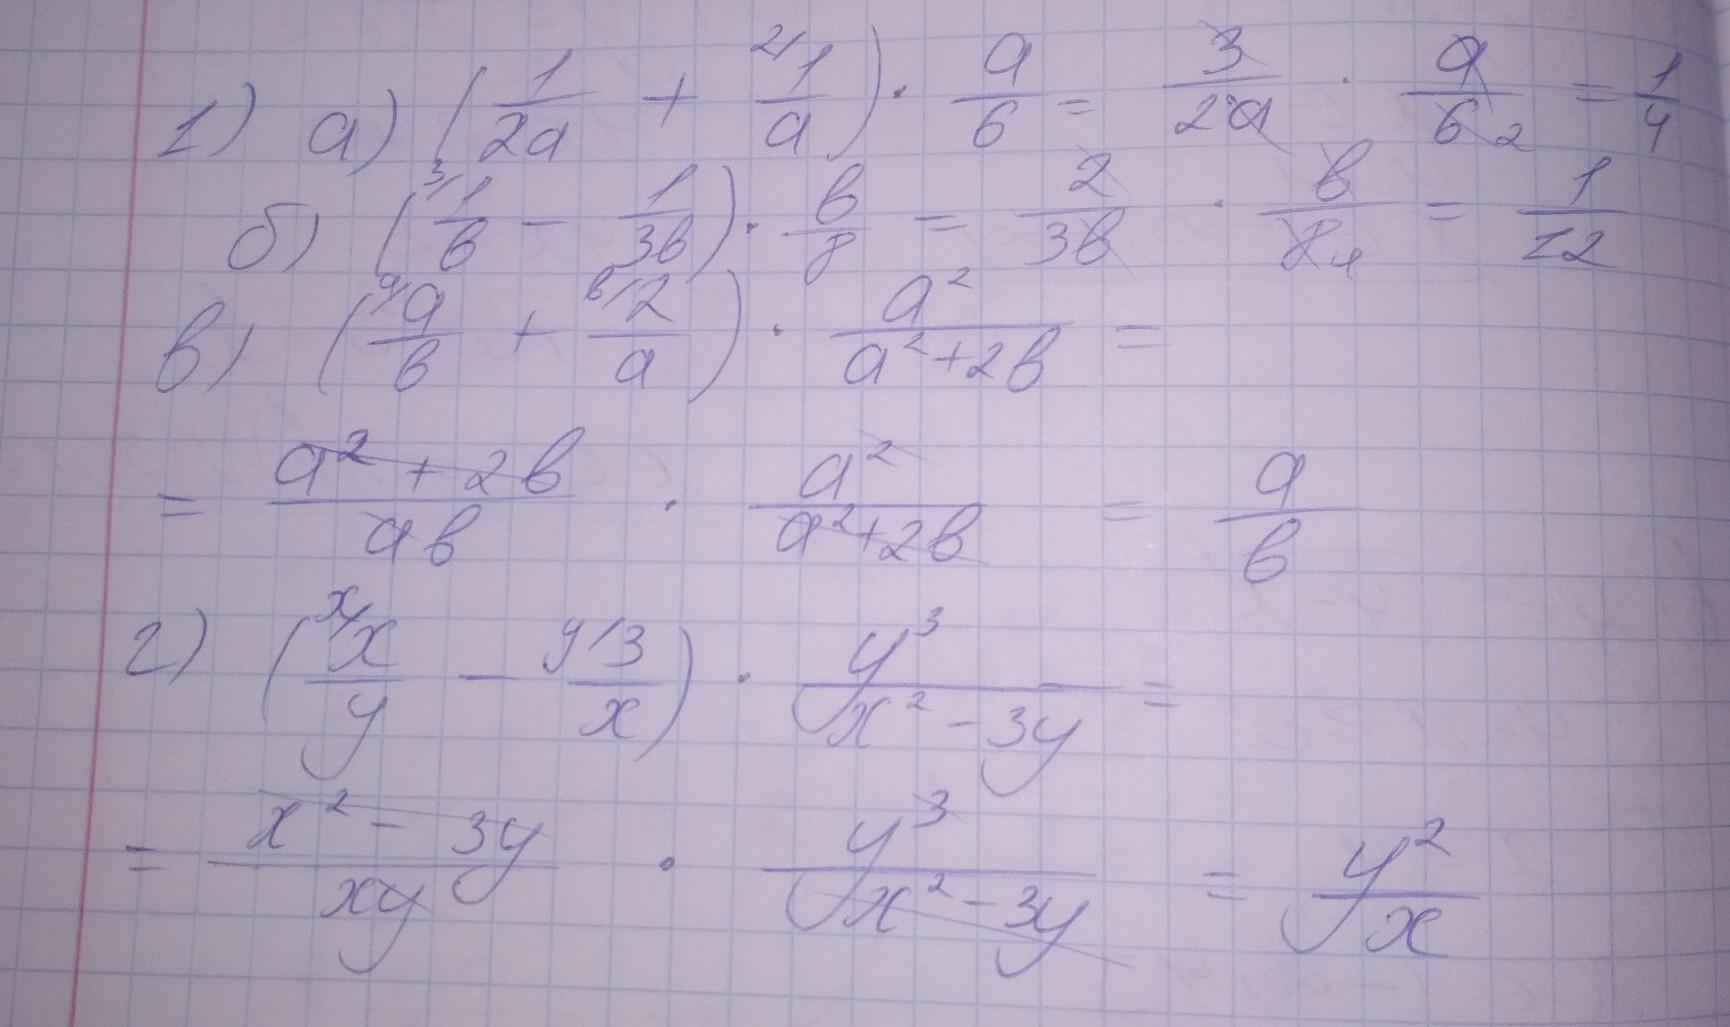 1) а) (1/2a + 2/1/a) · a/6 = 3/2a · a/6 2 = 1/4
б) (3/1/b − 1/3b) · b/8 = 2/3b · b/8 4 = 1/12
в) (a/a/b + b/2/a) · a²/a²+2b =
= a²+2b/ab · a²/a²+2b = a/b
г) (x/x/y − y/3/x) · y³/x²−3y =
= x²−3y/xy · y³/x²−3y = y²/x